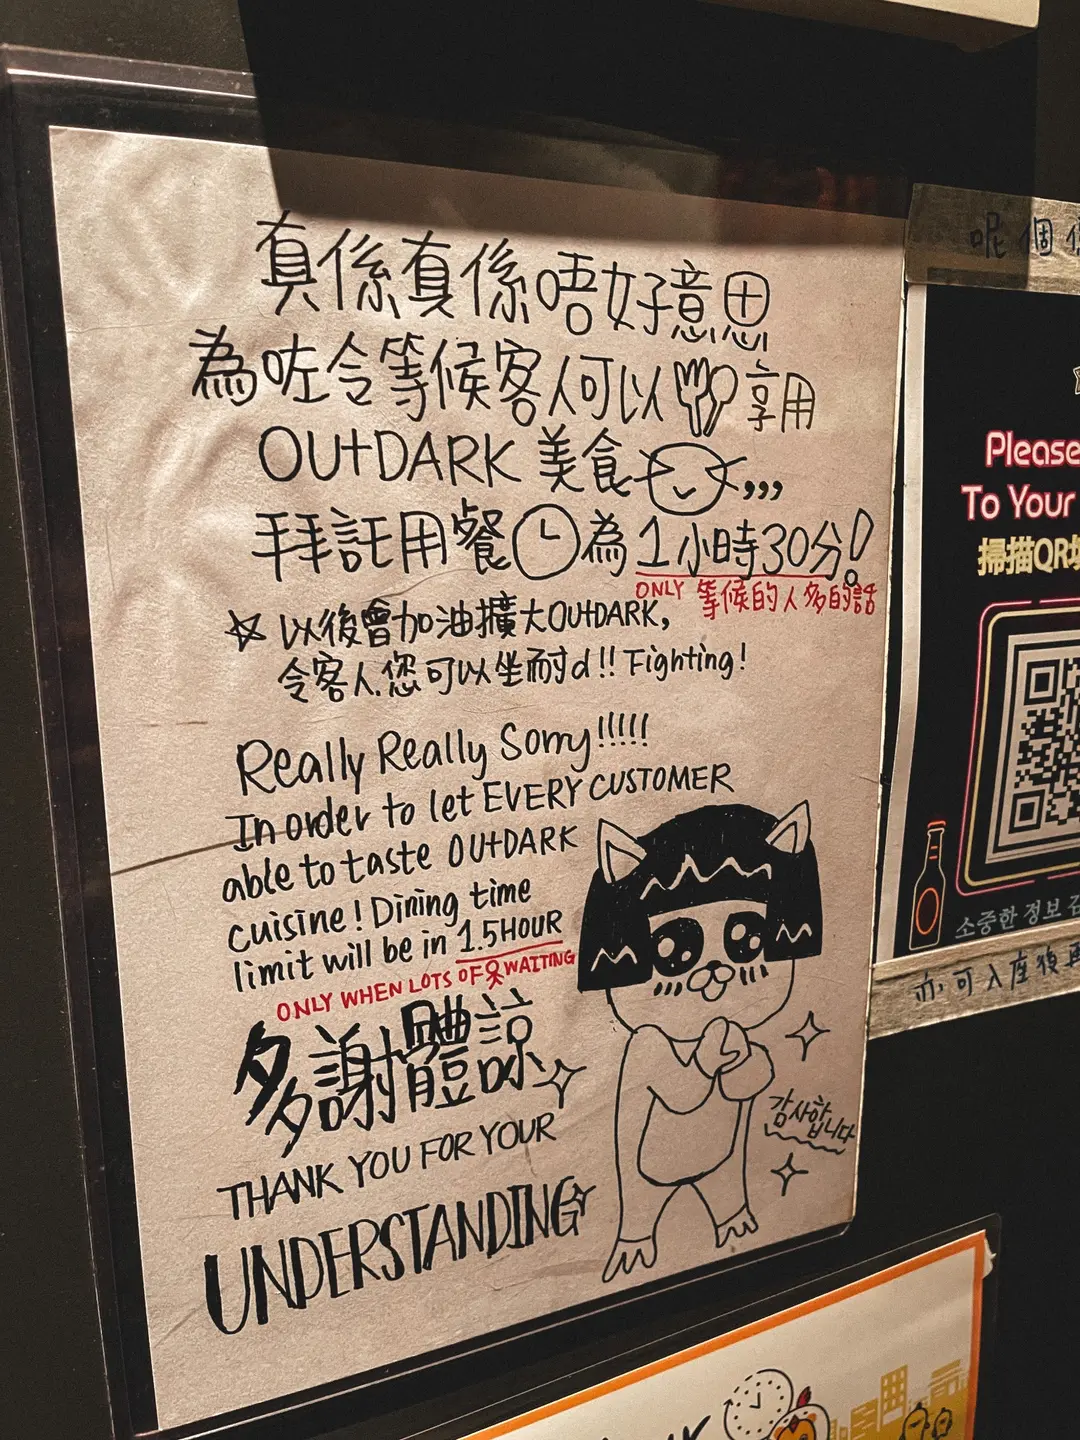 真係真係唔好意思
為咗令等候客人可以享用
OUtDARK 美食,,,
拜託用餐為1小時30分!
ONLY 等候的人多的話
☆ 以後會加油擴大OUtDARK,
令客人您可以坐耐d!! Fighting!
Really Really Sorry!!!!!
In order to let EVERY CUSTOMER
able to taste OUtDARK
cuisine! Dining time
limit will be in 1.5HOUR
ONLY WHEN LOTS OF WAITING
多謝體諒
THANK YOU FOR YOUR
UNDERSTANDING
감사합니다
呢個
Please
To Your
掃描QR
소중한 정보
亦可入座後再